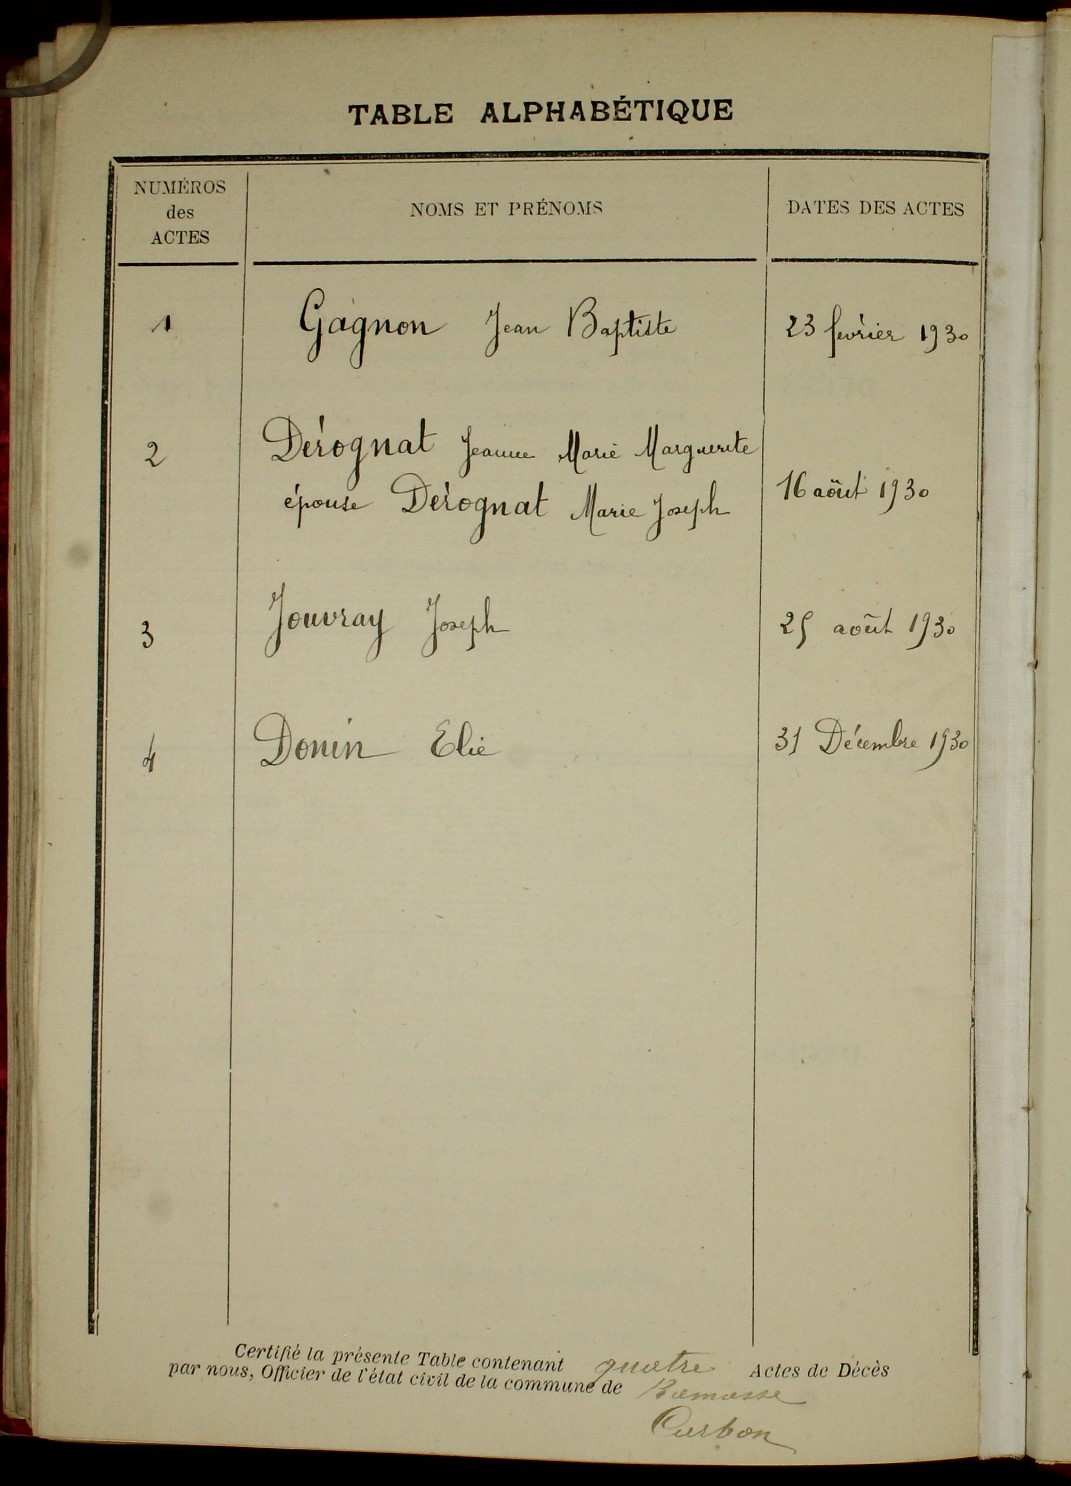 TABLE ALPHABÉTIQUE
NUMÉROS
des
ACTES
NOMS ET PRÉNOMS
DATES DES ACTES
1 Gagnon Jean Baptiste 23 fevrier 1930
2 Dérognat Jeanne Marie Marguerite
épouse Dérognat Marie Joseph 16 août 1930
3 Jouvray Joseph 25 août 1930
4 Donin Elie 31 Décembre 1930
Certifié la présente Table contenant quatre Actes de Décès
par nous, Officier de l'état civil de la commune de
Curbon